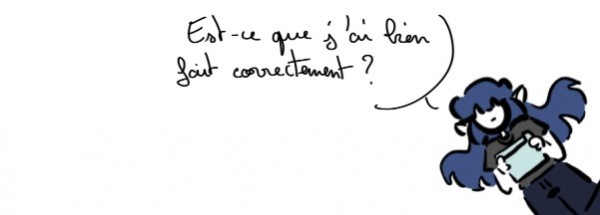 Est-ce que j'ai bien
fait correctement ?